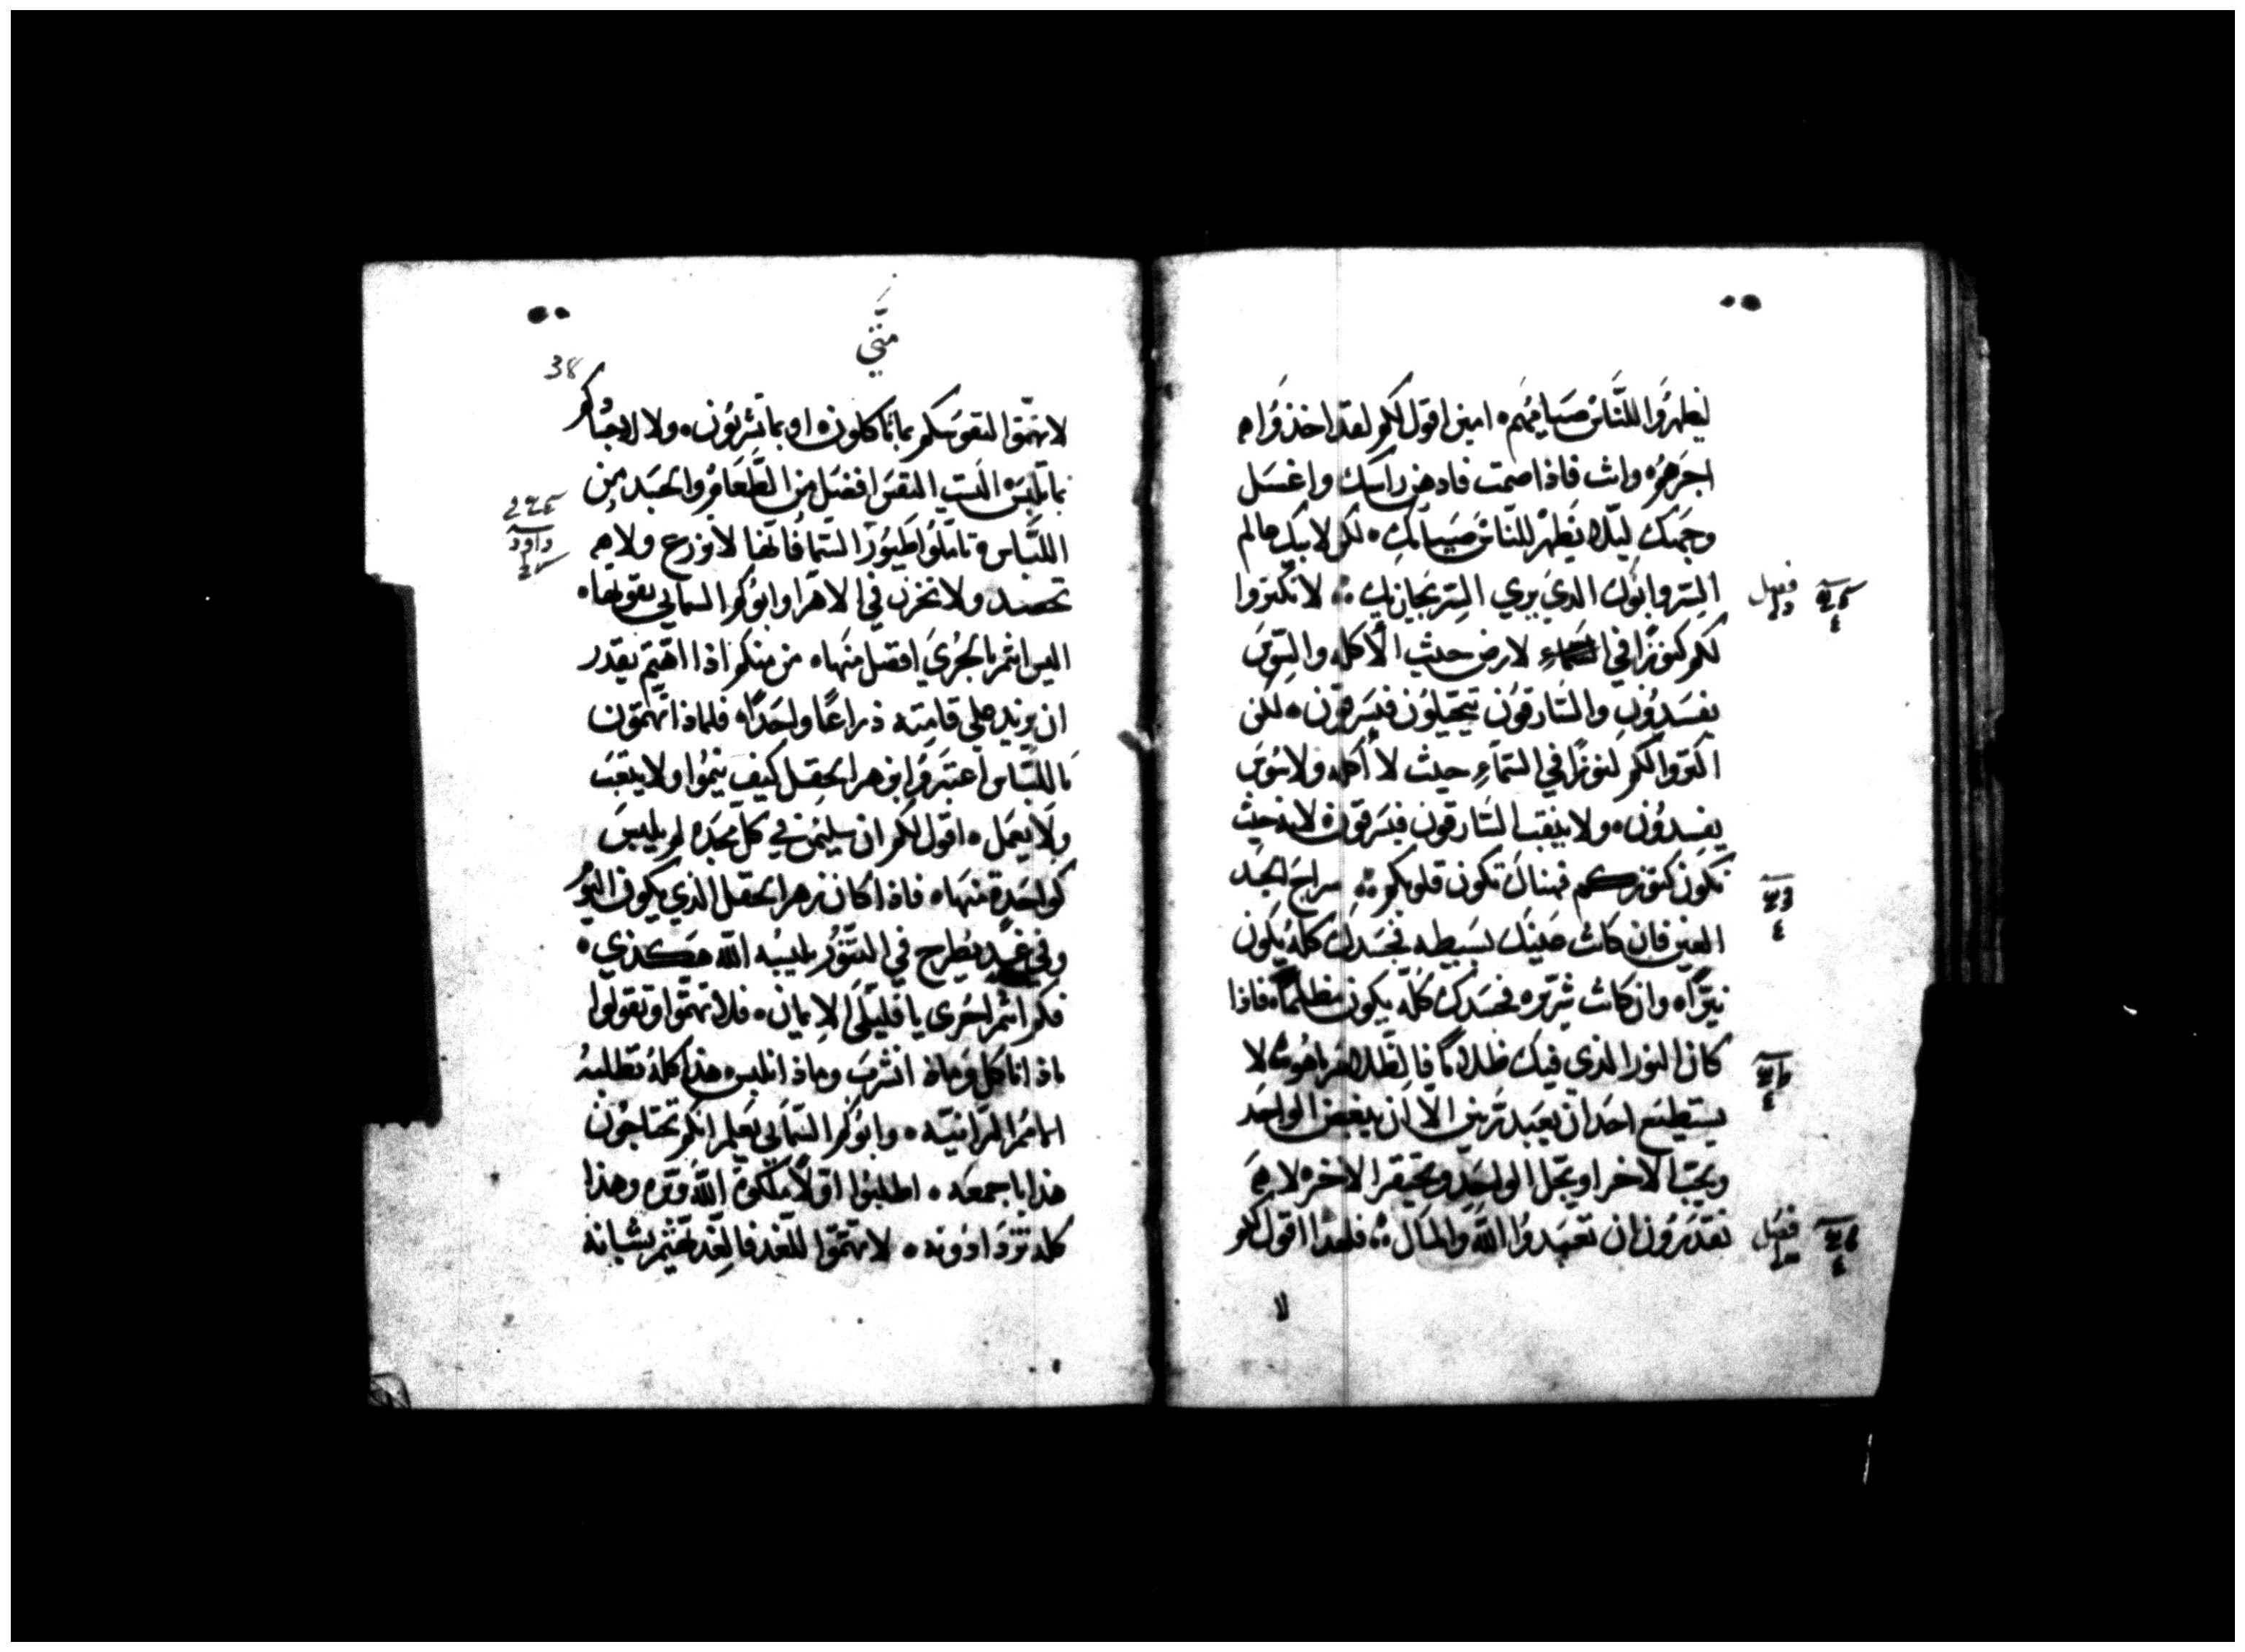 ليظهروا للناس صيامهم ه امين اقول لكم لقد اخذوا ه
اجرهم ه وانت فاذا صمت فادهن راسك واغسل
وجهك ليلا تظهر للناس صيامك ه لكن لابيك عالم
السر وابوك الذي يري السر يجازيك لا تكنزوا
لكم كنوزا في لارض حيث الأكله والسوس
يفسدون والسارقون يتحيلون فيسرقون ه لكن
اكنزوا لكم كنوزا في السماء حيث لا أكله ولا سوس
يفسدون ه ولا ينقب السارقون فيسرقون ه لانه حيث
تكون كنوزكم فهناك تكون قلوبكم سراج الجسد
العين فان كانت عينك بسيطه فجسدك كله يكون
نيرا ه وان كانت شريره فجسدك كله يكون مظلما ه فاذا
كان النور الذي فيك ظلاما فالظلام ما هو ه لا
يستطيع احد ان يعبد ربين الا ان يبغض الواحد
ويحب الاخر او يجل الواحد ويحتقر الاخر ه لا
تقدرون ان تعبدوا الله والمال فلهذا اقول لكم
لا
فصل
فصل
متي
38
لا تهتموا لنفوسكم بما تاكلون ه او بما تشربون ه ولا لاجسادكم
بما تلبس ه اليست النفس افضل من الطعام والجسد من
اللباس ه تاملوا طيور السما فانها لا تزرع ولا
تحصد ولا تخزن في الاهرا وابوكم السمايي يقوتها ه
اليس انتم بالحري افضل منها ه من منكم اذا اهتم يقدر
ان يزيد علي قامته ذراعا واحدا ه فلماذا تهتمون
باللباس اعتبروا بزهر الحقل كيف ينموا ولا يتعب
ولا يعمل ه اقول لكم ان سليمن في كل مجده لم يلبس
كواحدة منها ه فاذا كان زهر الحقل الذي يكون اليوم
وفي غد يطرح في التنور يلبسه الله هكذي ه
فكم انتم احري يا قليلي الايمان ه فلا تهتموا وتقولوا
ماذا ناكل وماذا نشرب وماذا نلبس هذا كله تطلبه
الامم البرانيه ه وابوكم السمايي يعلم انكم تحتاجون
هذا باجمعه ه اطلبوا اولا ملكوة الله وبره وهذا
كله تزدادونه ه لا تهتموا للغد فالغد يهتم بشانه
داود